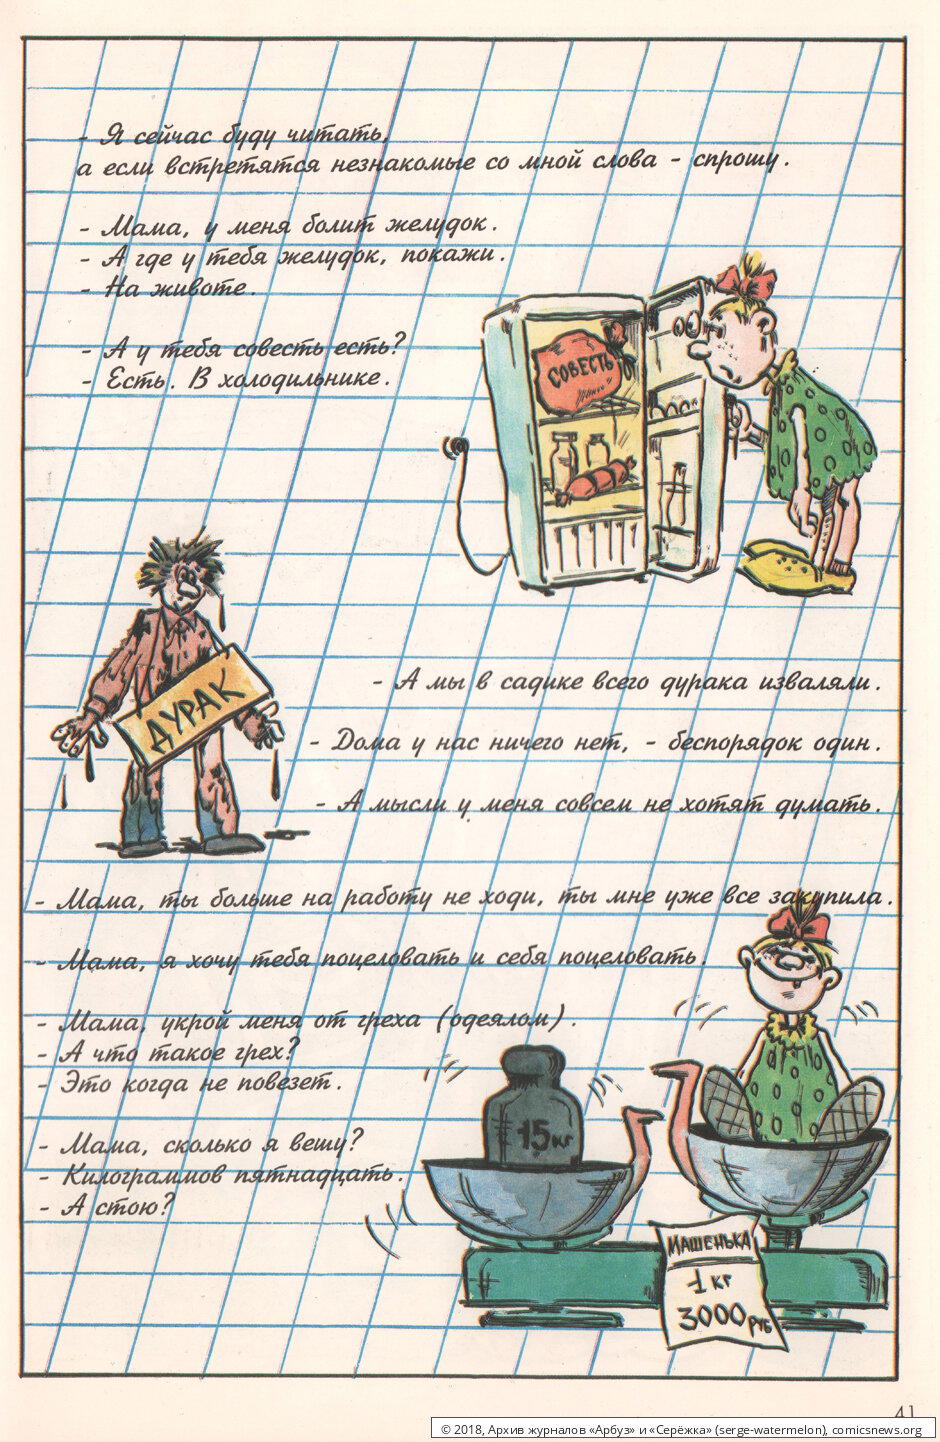 - Я сейчас буду читать,
а если встретятся незнакомые со мной слова - спрошу.
- Мама, у меня болит желудок.
- А где у тебя желудок, покажи.
- На животе.
- А у тебя совесть есть?
- Есть. В холодильнике.
СОВЕСТЬ
ДУРАК
- А мы в садике всего дурака изваляли.
- Дома у нас ничего нет, - беспорядок один.
- А мысли у меня совсем не хотят думать.
- Мама, ты больше на работу не ходи, ты мне уже все закупила.
- Мама, я хочу тебя поцеловать и себя поцеловать.
- Мама, укрой меня от греха (одеялом).
- А что такое грех?
- Это когда не повезет.
- Мама, сколько я вешу?
- Килограммов пятнадцать.
- А стою?
15 кг
МАШЕНЬКА
1 кг
3000 РУБ
41
© 2018, Архив журналов «Арбуз» и «Серёжка» (serge-watermelon), comicsnews.org